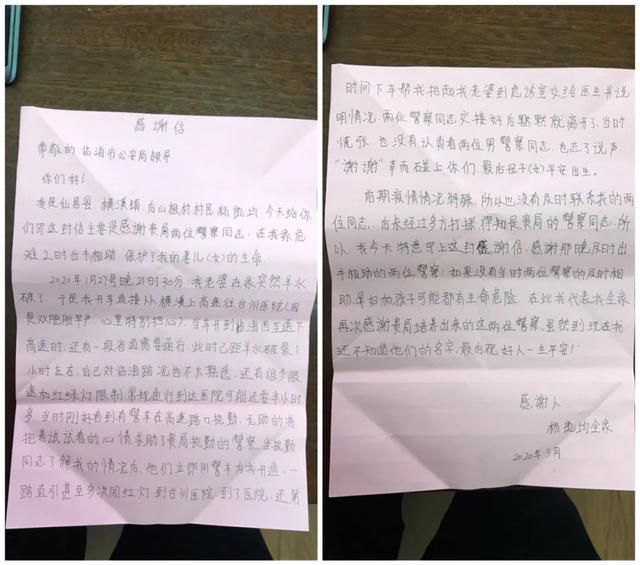 感谢信
尊敬的临海市公安局领导
你们好!
我是仙居县横溪镇后山根村村民杨凯均,今天给你
们写这封信主要是感谢贵局两位警察同志,在我家危
难之时出手相助,保护了我的妻儿(女)的生命
2020年1月27号晚21时30分,我老婆在家突然羊水
破了,于是我开车直接从横溪上高速往台州医院(因
是双胞胎早产,心里特别担心),当车开到临海西互通下
高速时,还有一段省道需要通行,此时已距羊水破裂1
小时左右,自己对临海路况也不太熟悉,还有很多限
速和红绿灯限制常规通行到达医院可能还要半小时
多,当时刚好看到有警车在高速路口执勤,无助的我
抱着试试看的心情求助了贵局执勤的警察,当执勤
同志了解我的情况后,他们立即用警车为我开道,一
路直引甚至多次闯红灯到台州医院,到了医院,还第
时间下车帮我抱两我老婆到急诊室交给医生并说
明情况,两位警察同志交接好后默默就离开了,当时
慌张,也没有认真看两位男警察同志,也忘了说声
“谢谢”幸而碰上你们,最后母子(女)平安出生。
前期疫情情况特殊,所以也没有及时联系我的两
位同志,后来经过多方打探得知是贵局的警察同志,所
以,我今天特意写上这封感谢信,感谢那晚及时出
手相助的两位警察,如果没有当时两位警察的及时相
助,孕妇和孩子可能都有生命危险,在此我代表我全家
再次感谢贵局培养出来的这两位警察,虽然到现在我
还不知道他们的名字,最后祝好人一生平安!
感谢人
杨凯均全家
2020年3月